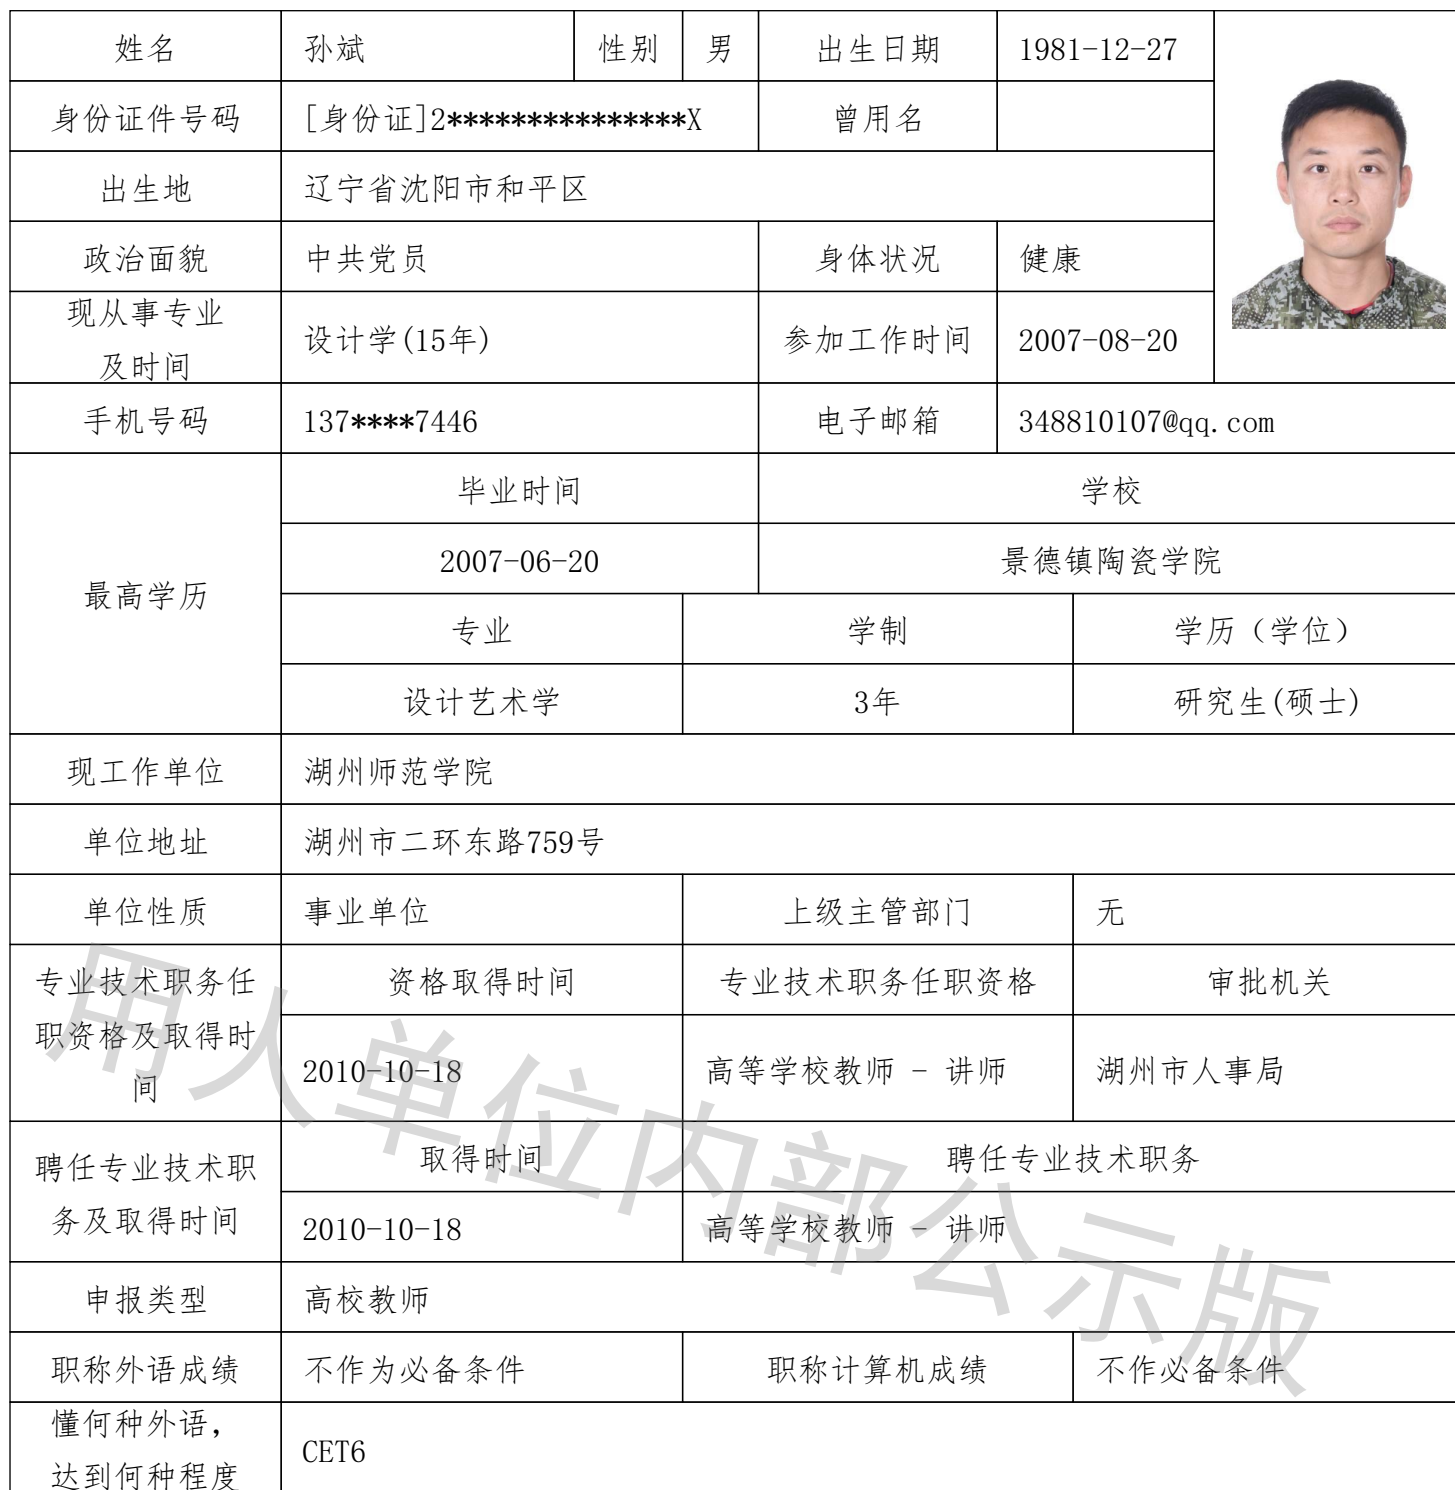 姓名 孙斌 性别 男 出生日期 1981-12-27
身份证件号码 [身份证]2***************X 曾用名
出生地 辽宁省沈阳市和平区
政治面貌 中共党员 身体状况 健康
现从事专业
及时间 设计学(15年) 参加工作时间 2007-08-20
手机号码 137****7446 电子邮箱 348810107@qq.com
最高学历
毕业时间 学校
2007-06-20 景德镇陶瓷学院
专业 学制 学历（学位）
设计艺术学 3年 研究生(硕士)
现工作单位 湖州师范学院
单位地址 湖州市二环东路759号
单位性质 事业单位 上级主管部门 无
专业技术职务任
职资格及取得时
间
资格取得时间 专业技术职务任职资格 审批机关
2010-10-18 高等学校教师 - 讲师 湖州市人事局
聘任专业技术职
务及取得时间
取得时间 聘任专业技术职务
2010-10-18 高等学校教师 - 讲师
申报类型 高校教师
职称外语成绩 不作为必备条件 职称计算机成绩 不作必备条件
懂何种外语，
达到何种程度 CET6
用人单位内部公示版